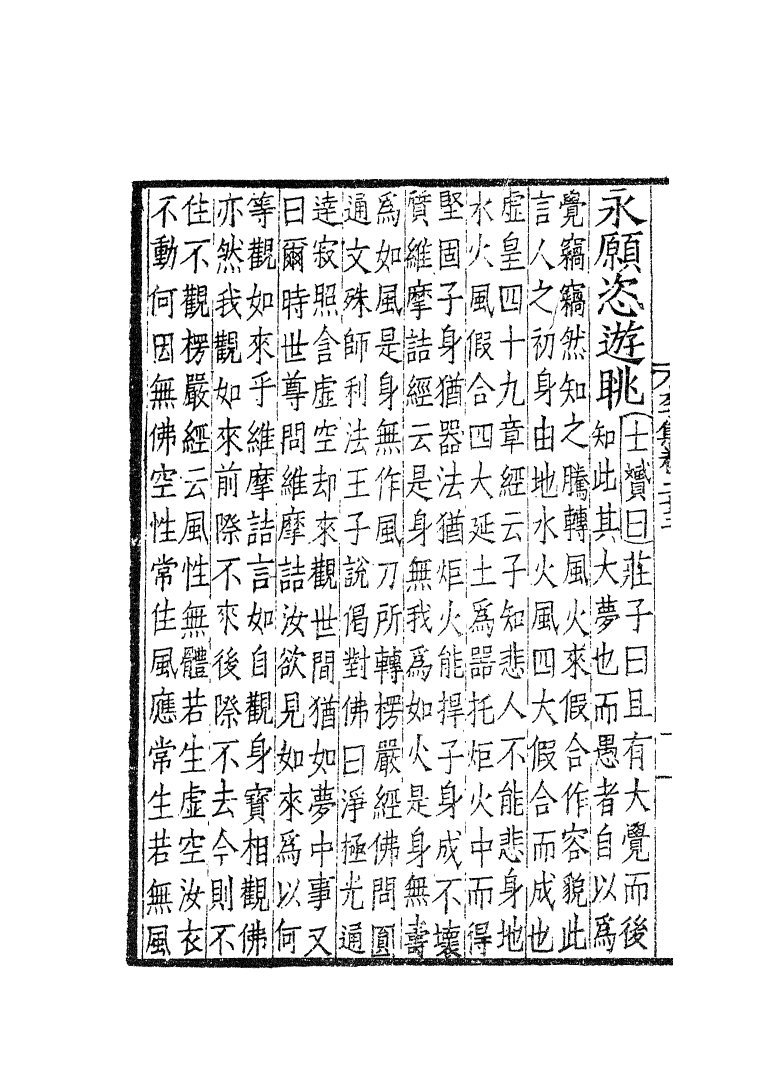 永願恣遊眺士贇曰莊子曰且有大覺而後
知此其大夢也而愚者自以爲
覺竊竊然知之騰轉風火來假合作容貌此
言人之初身由地水火風四大假合而成也
虛皇四十九章經云子知悲人不能悲身地
水火風假合四大延土爲器托炬火中而得
堅固子身猶器法猶炬火能捍子身成不壞
質維摩詰經云是身無我爲如火是身無壽
爲如風是身無作風刀所轉楞嚴經佛問圓
通文殊師利法王子說偈對佛曰淨極光通
達寂照含虛空却來觀世間猶如夢中事又
曰爾時世尊問維摩詰汝欲見如來爲以何
等觀如來乎維摩詰言如自觀身寶相觀佛
亦然我觀如來前際不來後際不去今則不
住不觀楞嚴經云風性無體若生虛空汝衣
不動何因無佛空性常住風應常生若無風